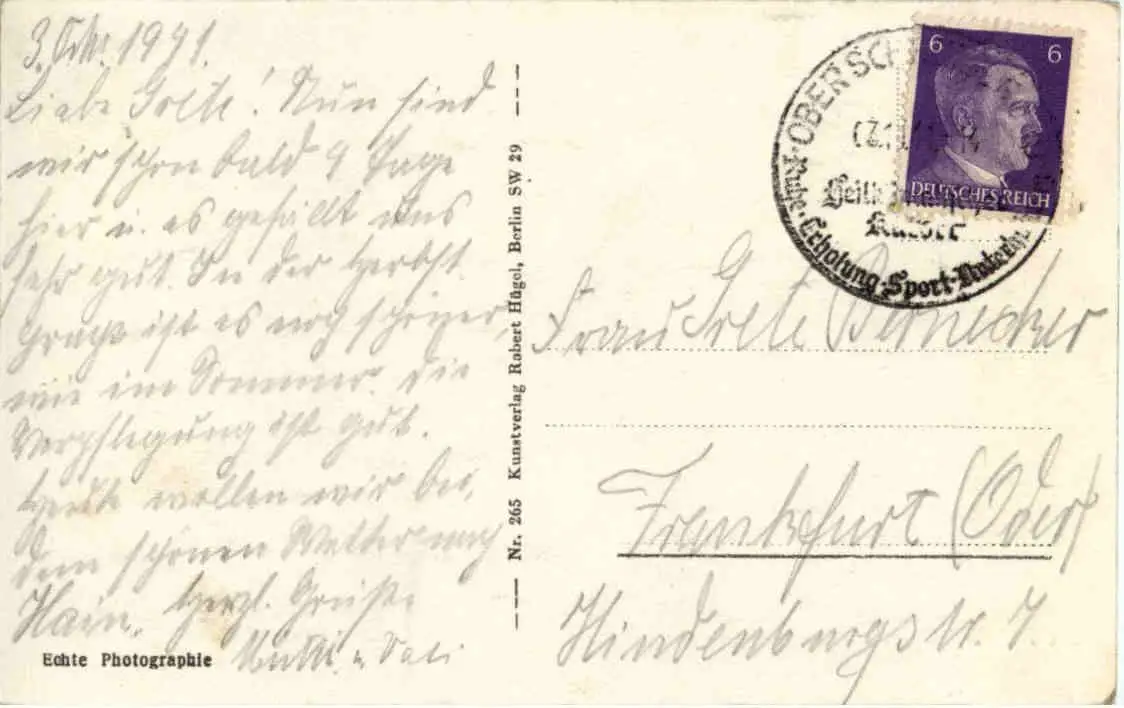 3. Okt. 1941.
Liebe Grete! Nun sind
wir schon bald 9 Tage
hier u. es gefällt uns
sehr gut. In der Herbst
pracht ist es noch schöner,
wie im Sommer. Die
Verpflegung ist gut.
Heute wollen wir bei
dem schönen Wetter nach
Hain. Herzl. Grüße
Echte Photographie
Nr. 265 Kunstverlag Robert Hügel, Berlin SW 29
6 6
DEUTSCHES REICH
OBERSCH
Ruhe · Erholung · Sport
Frau Grete Bernecker
Frankfurt (Oder)
Hindenburgstr. 7.